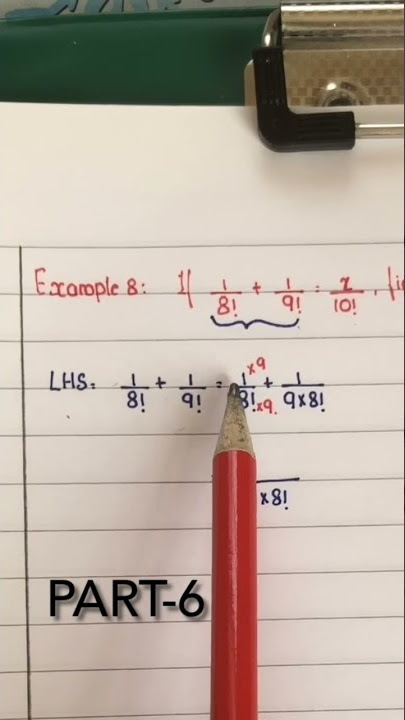 Example 8: If 1/8! + 1/9! = x/10!,
LHS = 1/8! + 1/9! = 1×9/8!×9 + 1/9×8!
×8!
PART-6